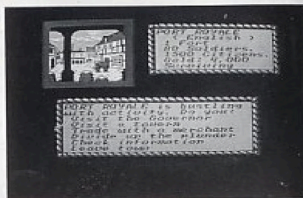 PORT ROYALE
( English )
1 Fort
80 Soldiers.
1500 Citizens.
Gold: 4,000
Surviving
PORT ROYALE is bustling
with activity. Do you:
Visit the Governor
Visit a tavern
Trade with a merchant
Divide up the plunder
Check information
Leave town